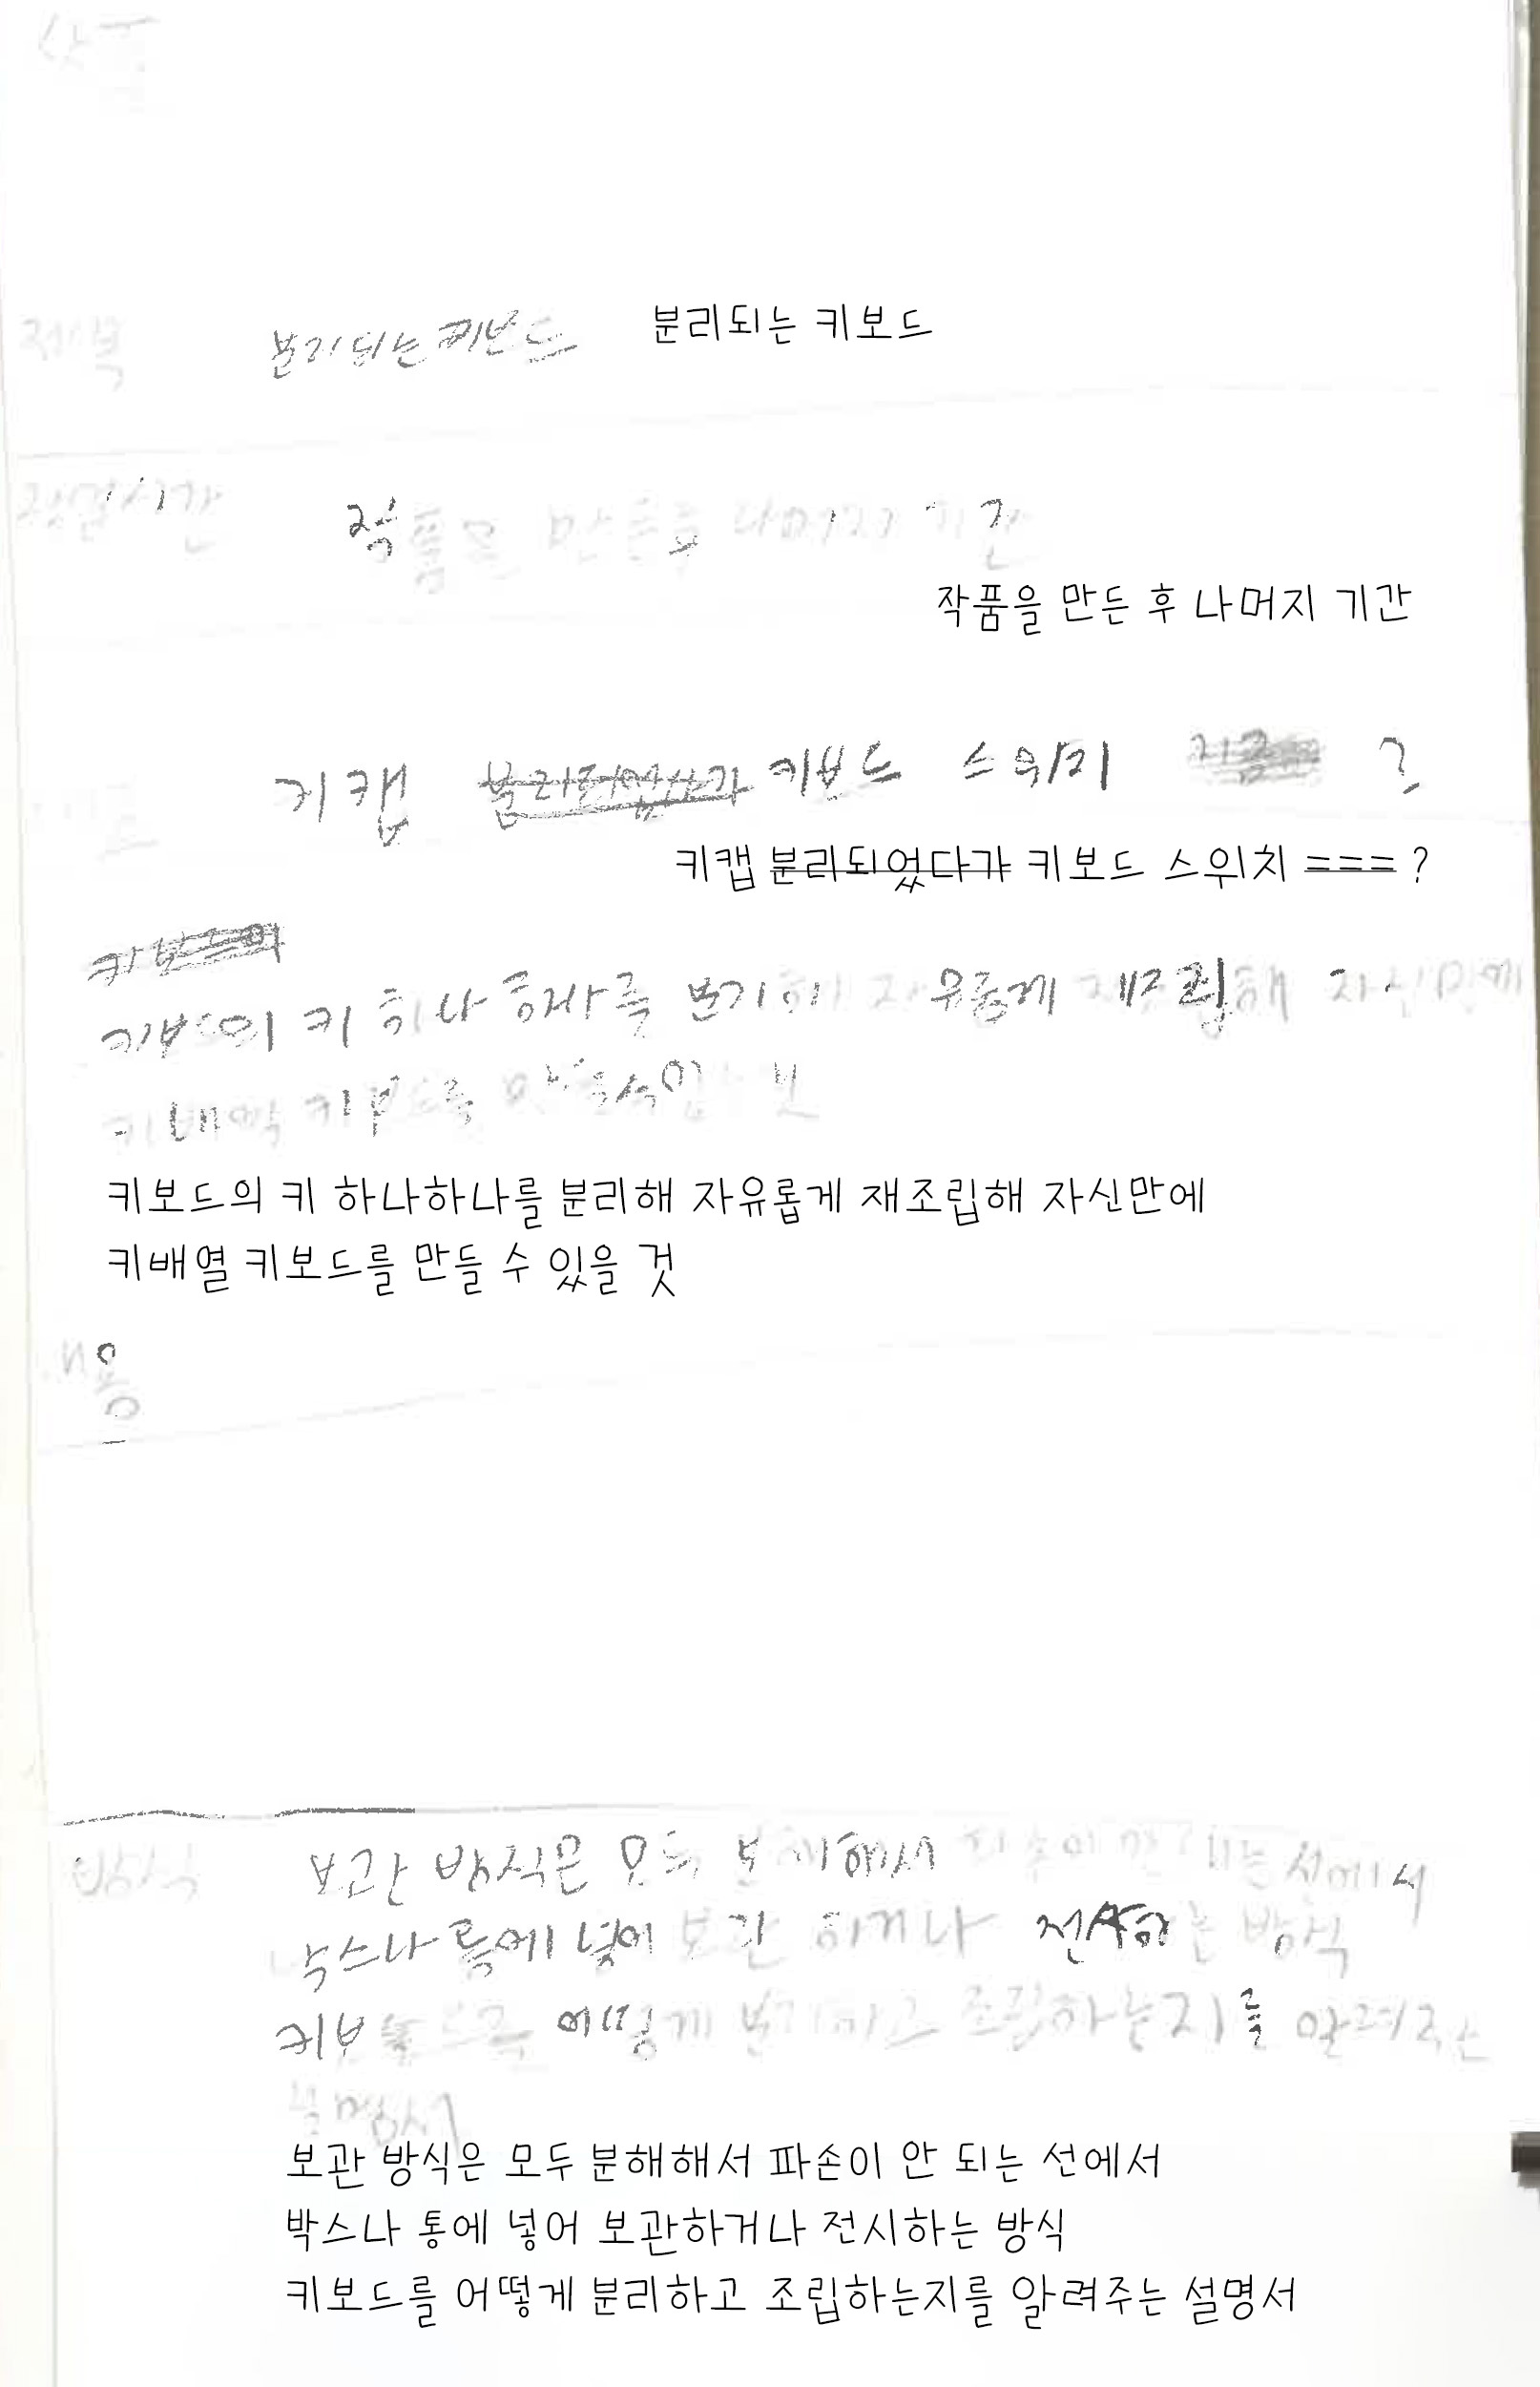 제목 분리되는 키보드 분리되는 키보드
작품을 만든 후 나머지 기간
작품을 만든 후 나머지 기간
키캡 분리되었다가 키보드 스위치 ?
키캡 분리되었다가 키보드 스위치 === ?
키보드의
키보드의 키 하나하나를 분리해 자유롭게 재조립해 자신만에
키배열 키보드를
키보드의 키 하나하나를 분리해 자유롭게 재조립해 자신만에
키배열 키보드를 만들 수 있을 것
내용
방식 보관 방식은 모두 분해해서 파손이 안 되는 선에서
박스나 통에 넣어 보관하거나 전시하는 방식
키보드를 어떻게 분리하고 조립하는지를 알려주는
설명서
보관 방식은 모두 분해해서 파손이 안 되는 선에서
박스나 통에 넣어 보관하거나 전시하는 방식
키보드를 어떻게 분리하고 조립하는지를 알려주는 설명서